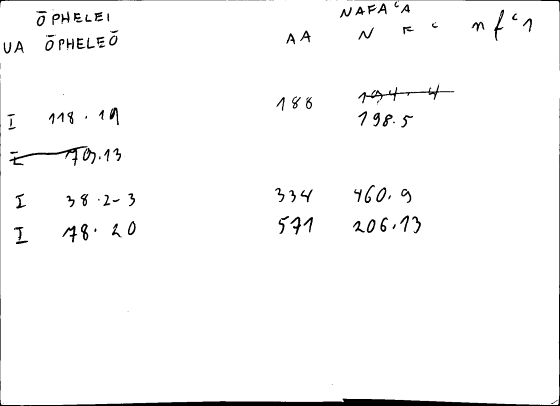 ŌPHELEI NAFAʿA
UA ŌPHELEŌ AA N F ʿ nfʿ1
188 194.4
I 118.19 198.5
I 70.13
I 38.2-3 334 460.9
I 78.20 571 206.13